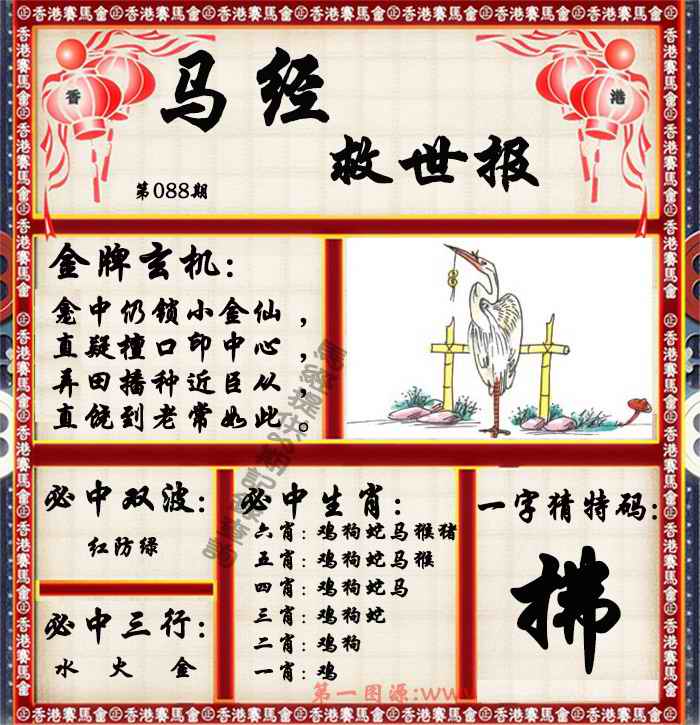 香港賽馬會
香 港
马经
救世报
第088期
金牌玄机：
龛中仍锁小金仙，
直疑檀口印中心，
弄田播种近臣从，
直饶到老常如此。
必中双波：
红防绿
必中三行：
水 火 金
必中生肖：
六肖：鸡狗蛇马猴猪
五肖：鸡狗蛇马猴
四肖：鸡狗蛇马
三肖：鸡狗蛇
二肖：鸡狗
一肖：鸡
一字猜特码：
拂
第一图源:www